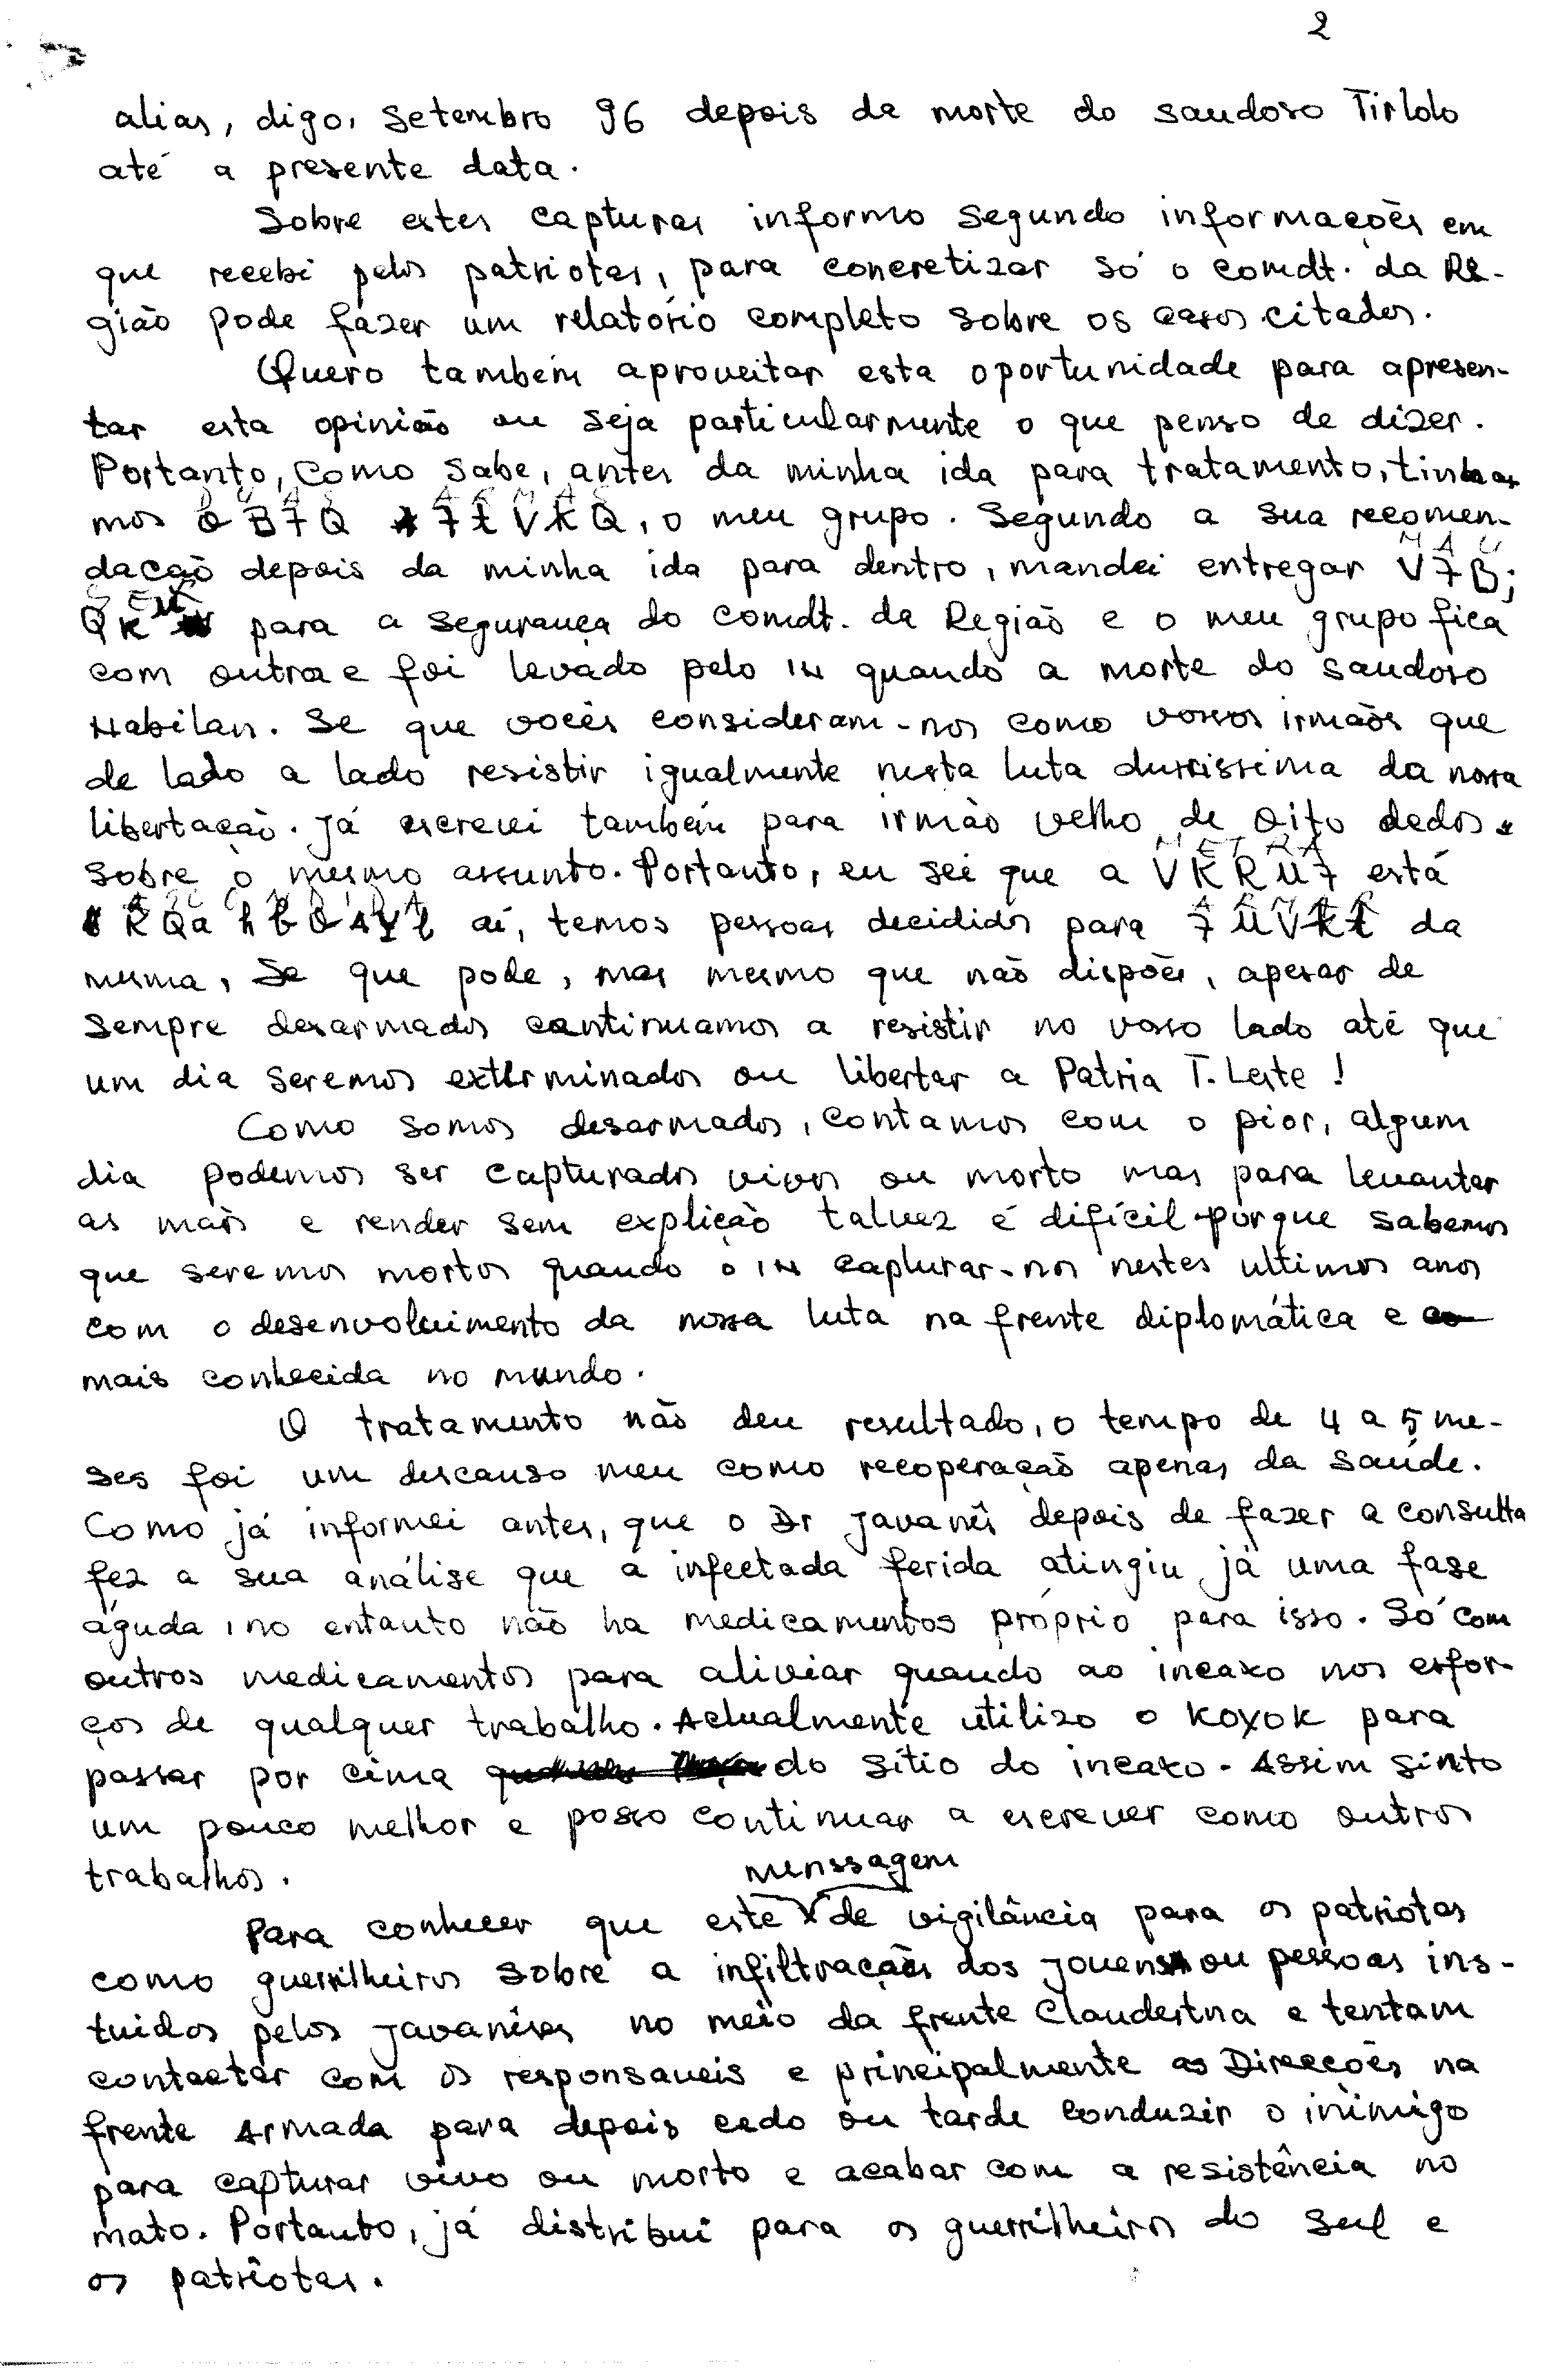 2
alias, digo, setembro 96 depois da morte do saudoso Tirlolo
até a presente data.
Sobre estes capturas informo segundo informações em
que recebi pelos patriotas, para concretizar só o comdt. da Re-
gião pode fazer um relatório completo sobre os casos citados.
Quero também aproveitar esta oportunidade para apresen-
tar esta opinião ou seja particularmente o que penso de dizer.
Portanto, como sabe, antes da minha ida para tratamento, tinha
mos o meu grupo. Segundo a sua recomen-
dação depois da minha ida para dentro, mandei entregar V7B;
QK para a segurança do comdt. da Região e o meu grupo fica
com outra e foi levado pelo IN quando a morte do saudoso
Nabilan. Se que vocês consideram-nos como vossos irmãos que
de lado a lado resistir igualmente nesta luta durissima da nossa
libertação. Já escrevi também para irmão velho de oito dedos
sobre o mesmo assunto. Portanto, eu sei que a VKRU7 está
aí, temos pessoas decididos para da
mesma, Se que pode, mas mesmo que não dispões, apesar de
sempre desarmados continuamos a resistir no vosso lado até que
um dia seremos exterminados ou libertar a Patria T. Leste !
Como somos desarmados, contamos com o pior, algum
dia podemos ser capturados vivos ou morto mas para levantar
as mãos e render sem explição talvez é difícil porque sabemos
que seremos mortos quando o IN capturar-nos nestes ultimos anos
com o desenvolvimento da nossa luta na frente diplomática e
mais conhecida no mundo.
O tratamento não deu resultado, o tempo de 4 a 5 me-
ses foi um descanso meu como recoperação apenas da saúde.
Como já informei antes, que o Dr javanês depois de fazer a consulta
fez a sua análise que a infectada ferida atingiu já uma fase
águda, no entanto não ha medicamentos próprio para isso. Só com
outros medicamentos para aliviar quando ao incaxo nos esfor-
ços de qualquer trabalho. Actualmente utilizo o KOYOK para
passar por cima do sítio do incaxo. Assim sinto
um pouco melhor e posso continuar a escrever como outros
trabalhos.
menssagem
Para conhecer que este de vigilância para os patriotas
como guerrilheiros sobre a infiltração dos jovens ou pessoas ins-
tuidos pelos javaneses no meio da frente Clandestna e tentam
contactar com os responsaveis e principalmente as Direccões na
frente Armada para depois cedo ou tarde conduzir o inimigo
para capturar vivo ou morto e acabar com a resistência no
mato. Portanto, já distribui para os guerrilheiros do sul e
os patriotas.